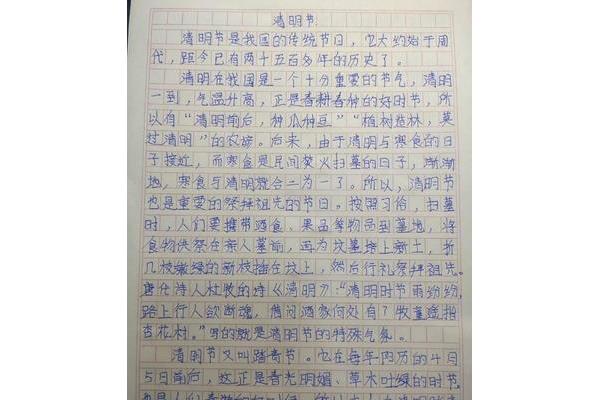 清明节
清明节是我国的传统节日，它大约始于周
代，距今已有两千五百多年的历史了。
清明在我国是一个十分重要的节气，清明
一到，气温升高，正是春耕春种的好时节，所
以有“清明前后，种瓜种豆”“植树造林，莫
过清明”的农谚。后来，由于清明与寒食的日
子接近，而寒食是民间禁火扫墓的日子，渐渐
地，寒食与清明就合二为一了。所以，清明节
也是重要的祭拜祖先的节日。按照习俗，扫墓
时，人们要携带酒食、果品等物品到墓地，将
食物供祭在亲人墓前，再为坟墓培上新土，折
几枝嫩绿的新枝插在坟上，然后行礼祭拜祖先。
唐代诗人杜牧的诗《清明》：“清明时节雨纷纷，
路上行人欲断魂。借问酒家何处有？牧童遥指
杏花村。”写的就是清明节的特殊气氛。
清明节又叫踏青节。它在每年阳历的4月
5日前后，这正是春光明媚、草木吐绿的时节，